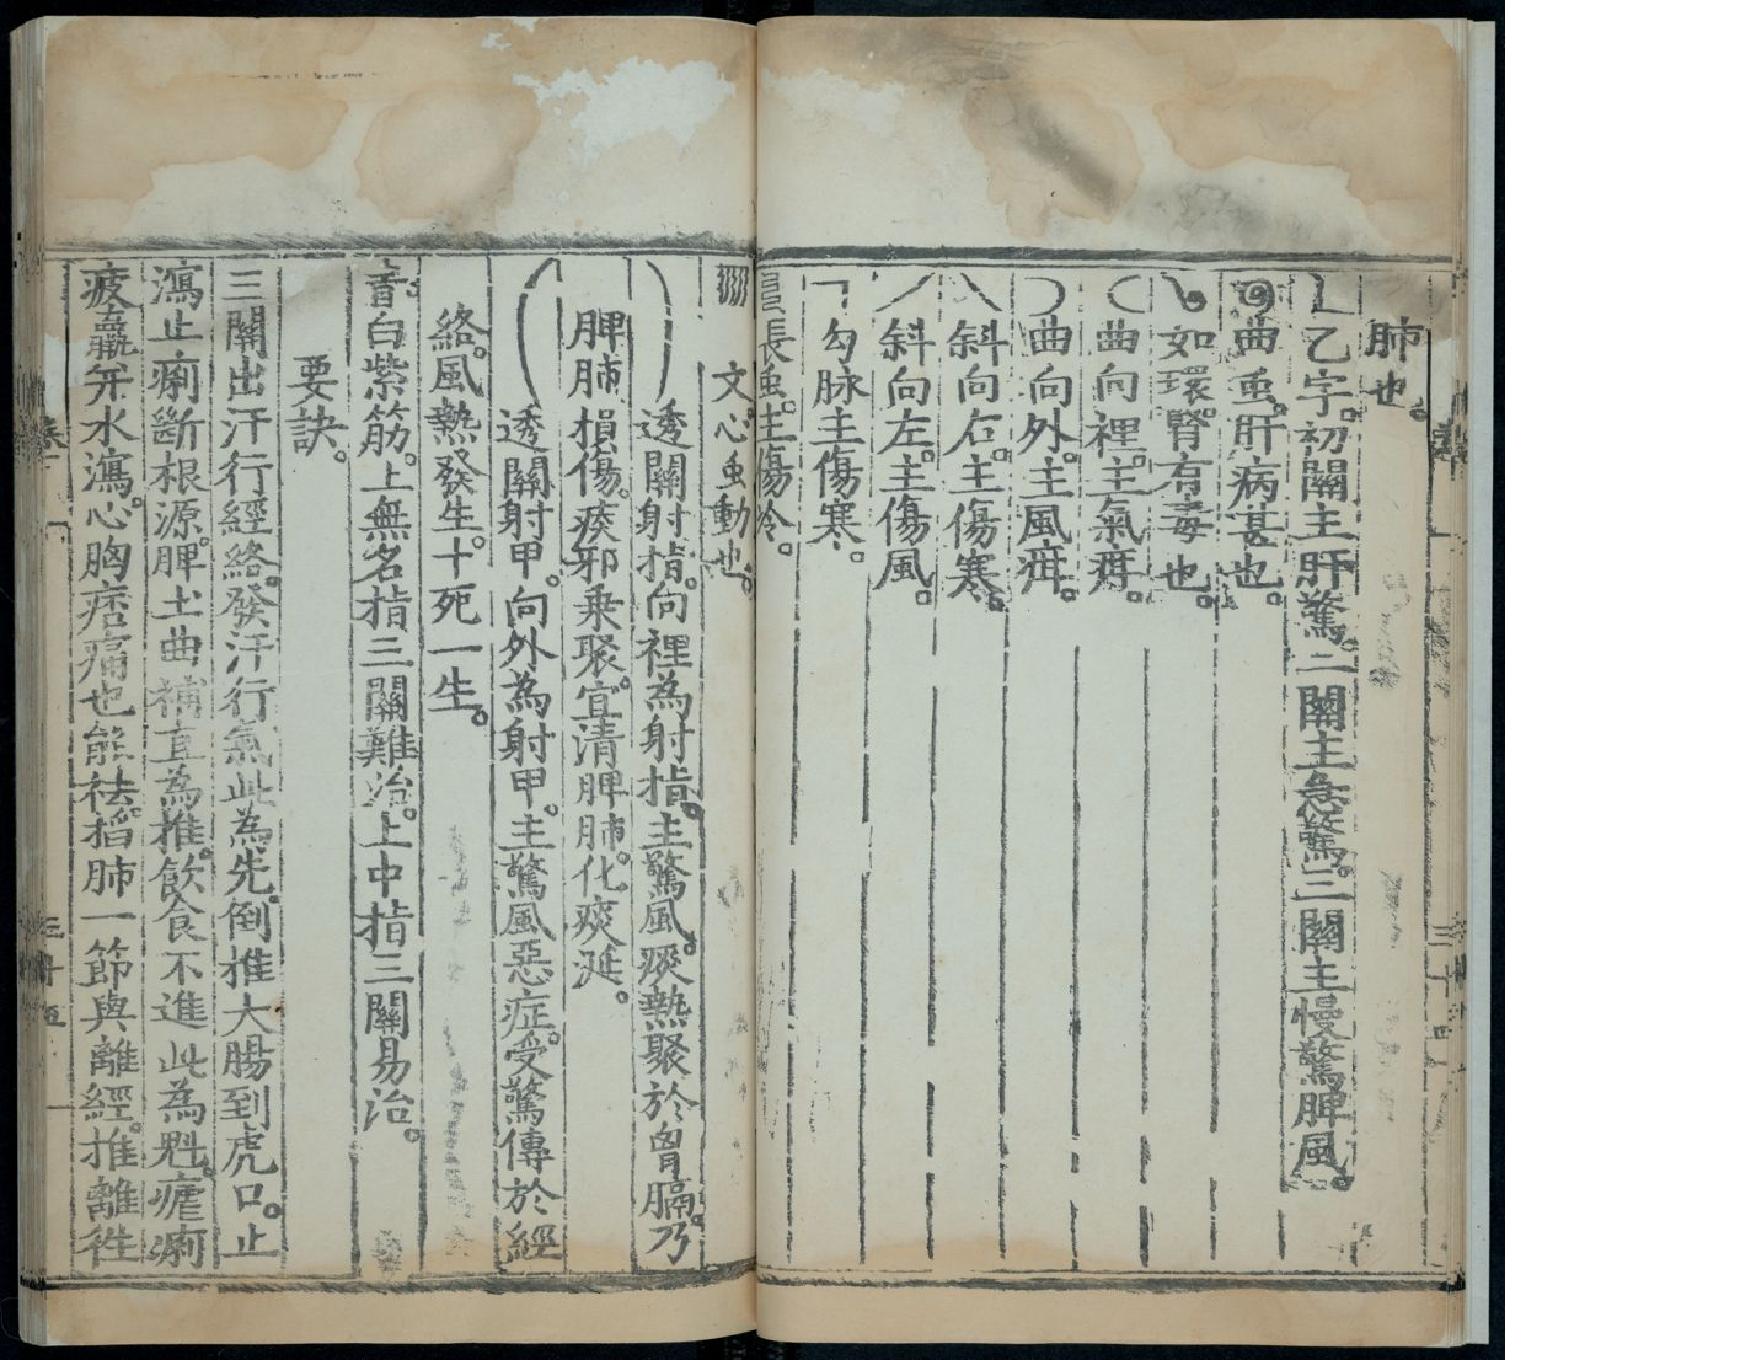 肺也。
乙字。初關主肝驚。二關主急驚。三關主慢驚脾風。
曲䖝。肝病甚也。
如環。腎有毒也。
曲向裡。主氣疳。
曲向外。主風疳。
斜向右。主傷寒。
斜向左。主傷風。
勾脉主傷寒。
長䖝。主傷冷。
文心䖝動也。
透關射指。向裡為射指。主驚風。痰熱聚於胷膈。乃
脾肺損傷。痰邪乗聚。宜清脾肺。化痰涎。
透關射甲。向外為射甲。主驚風惡症。受驚傳於經
絡。風熱發生。十死一生。
青白紫筋。上無名指三關難治。上中指三關易治。
要訣。
三關出汗行經絡。發汗行氣此為先。倒推大腸到虎口。止
瀉止痢斷根源。脾土曲補直為推。飲食不進此為魁。瘧痢
疲羸并水瀉。心胸痞痛也能祛。掐肺一節與離經。推離徃